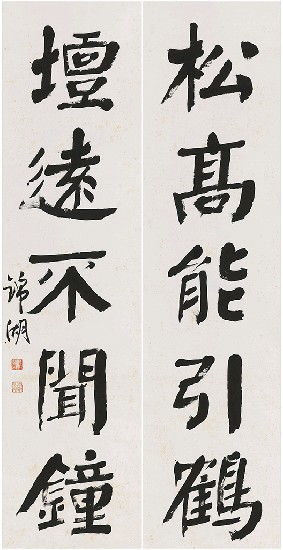 松高能引鶴
壇遠不聞鐘
錦湖